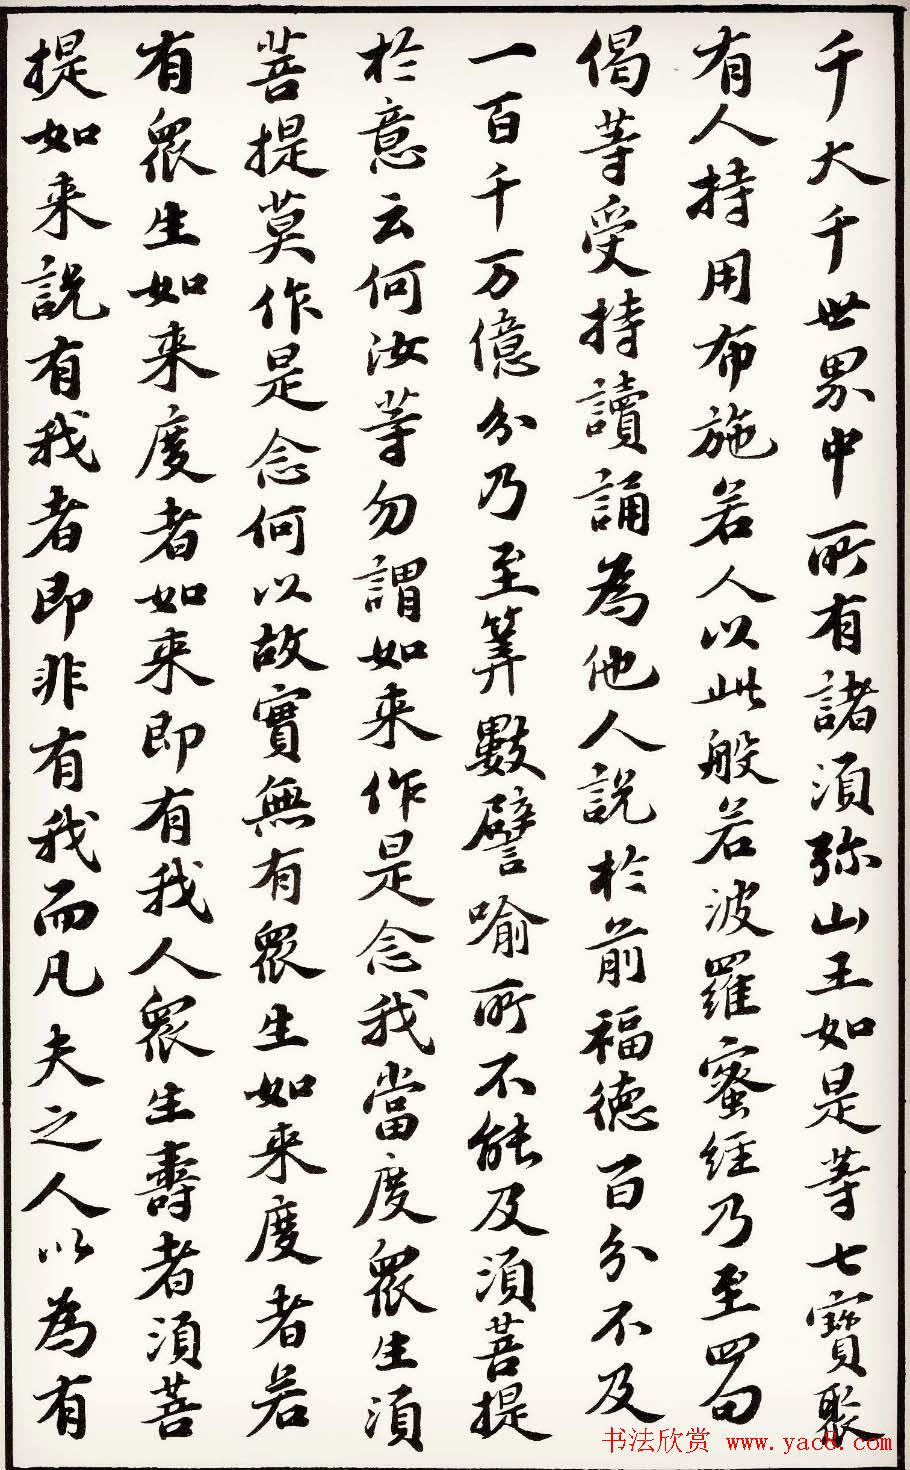 千大千世界中所有諸須弥山王如是等七寶聚
有人持用布施若人以此般若波羅蜜經乃至四句
偈等受持讀誦為他人説於前福德百分不及
一百千万億分乃至筭數譬喻所不能及須菩提
於意云何汝等勿謂如来作是念我當度眾生須
菩提莫作是念何以故實無有眾生如来度者若
有眾生如来度者如来即有我人眾生壽者須菩
提如来説有我者即非有我而凡夫之人以為有
书法欣赏 www.yac8.com